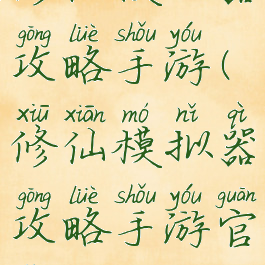 gōng lüè shǒu yóu
攻略手游(
xiū xiān mó nǐ qì
修仙模拟器
gōng lüè shǒu yóu guān
攻略手游官